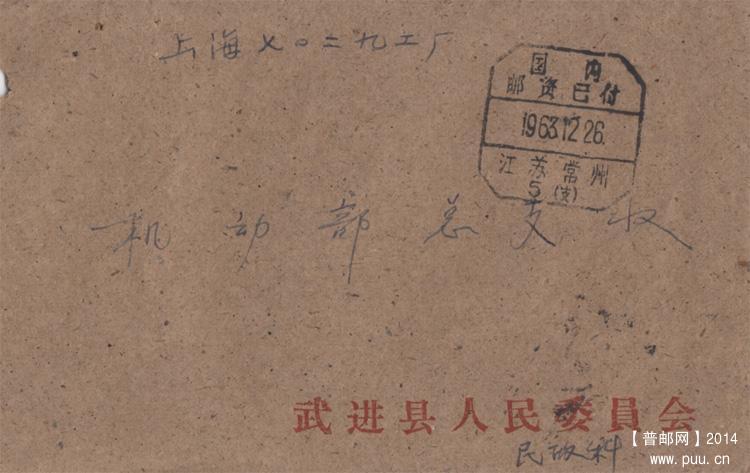 上海乂〇二九工厂
国内
邮资已付
1963.12.26.
江苏常州
5(支)
机动部总支收
武进县人民委員会
民政科
【普邮网】2014
www.puu.cn